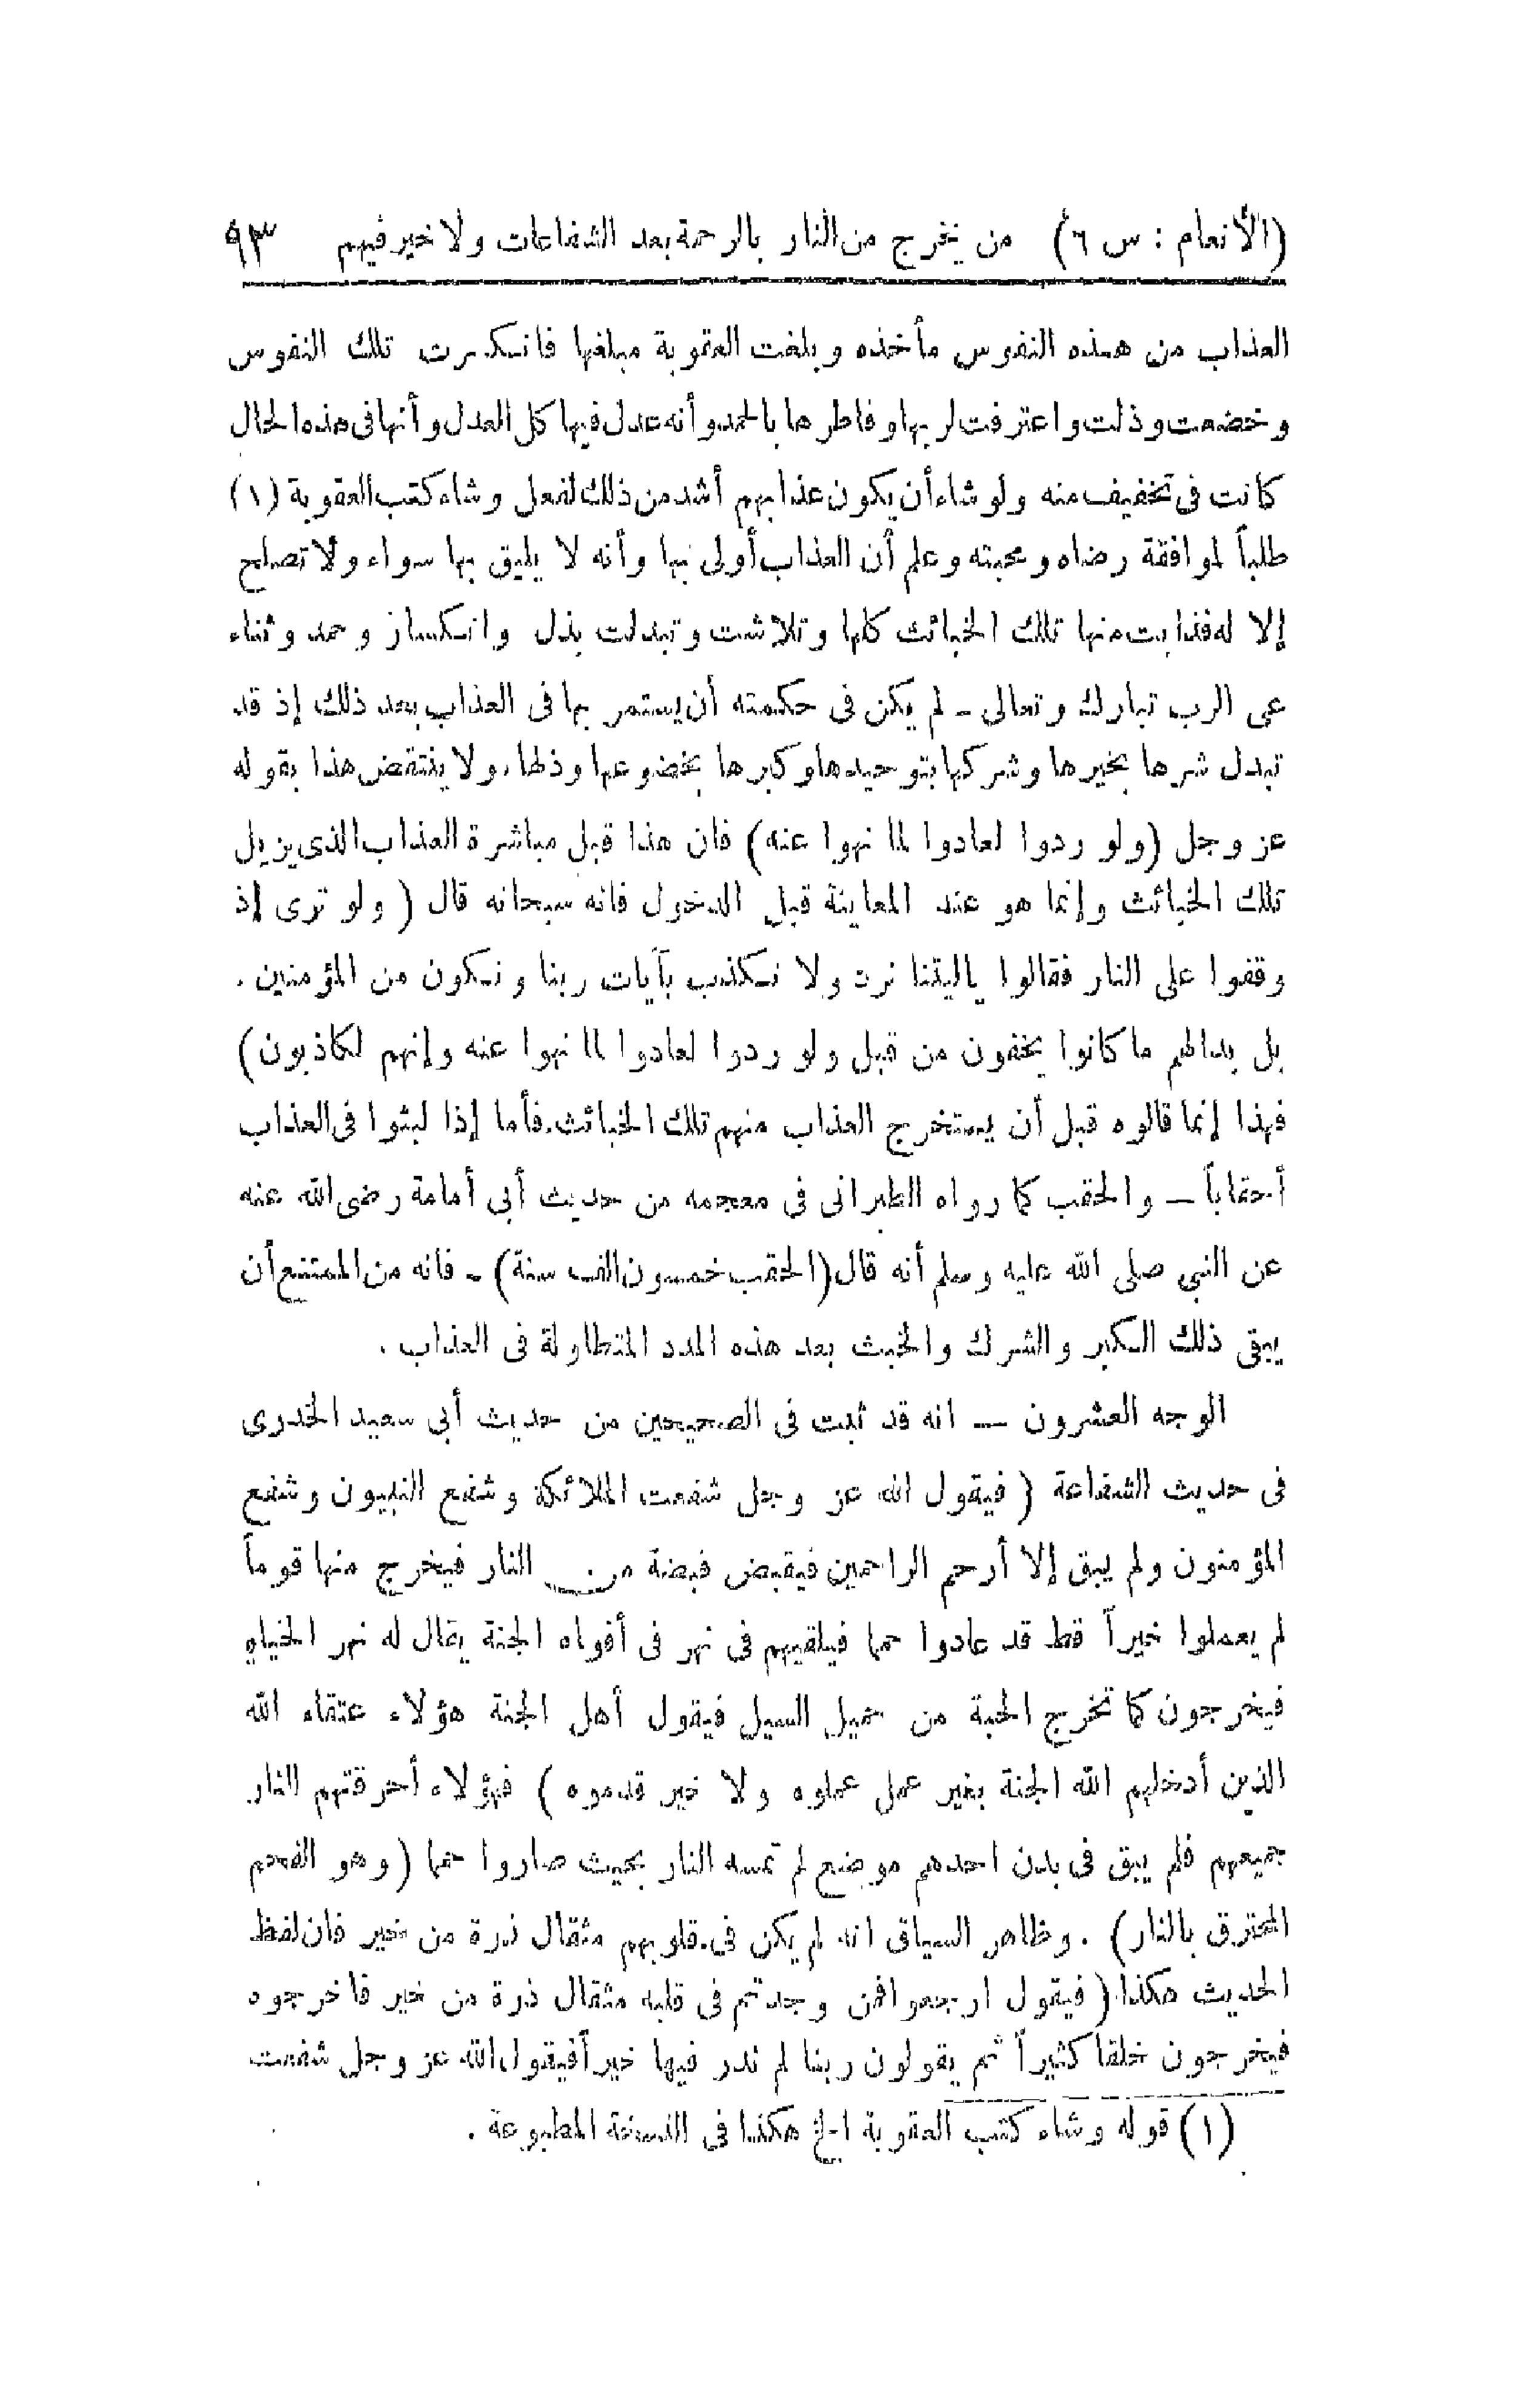 (الأنعام : س ٦) من يخرج من النار بالرحمة بعد الشفاعات ولا خير فيهم ٩٣
العذاب من هذه النفوس مأخذه وبلغت العقوبة مبلغها فانكسرت تلك النفوس
وخضعت وذلت واعترفت لربها وفاطرها بالحمد وأنه عدل فيها كل العدل وأنها في هذه الحال
كانت فى تخفيف منه ولو شاء أن يكون عذابهم أشد من ذلك لفعل وشاء كتب العقوبة (١)
طلباً لموافقة رضاه ومحبته وعلم أن العذاب أولى بها وأنه لا يليق بها سواء ولا تصلح
إلا له فذابت منها تلك الخبائث كلها وتلاشت وتبدلت بذل وانكسار وحمد وثناء
عى الرب تبارك وتعالى ـ لم يكن فى حكمته أن يستمر بها فى العذاب بعد ذلك إذ قد
تبدل شرها بخيرها وشركها بتوحيدها وكبرها بخضوعها وذلها، ولا ينتقض هذا بقوله
عز وجل (ولو ردوا لعادوا لما نهوا عنه) فان هذا قبل مباشرة العذاب الذى يزيل
تلك الخبائث وإنما هو عند المعاينة قبل الدخول فانه سبحانه قال (ولو ترى إذ
وقفوا على النار فقالوا ياليتنا نرد ولا نكذب بآيات ربنا ونكون من المؤمنين .
بل بدالهم ما كانوا يخفون من قبل ولو ردوا لعادوا لما نهوا عنه وإنهم لكاذبون)
فهذا إنما قالوه قبل أن يستخرج العذاب منهم تلك الخبائث. فأما إذا لبثوا فى العذاب
أحقاباً ــ والحقب كما رواه الطبرانى فى معجمه من حديث أبى أمامة رضى الله عنه
عن النبى صلى الله عليه وسلم أنه قال (الحقب خمسون الف سنة) ـ فانه من الممتنع أن
يبقى ذلك الكبر والشرك والخبث بعد هذه المدد المتطاولة فى العذاب .
الوجه العشرون ــ انه قد ثبت فى الصحيحين من حديث أبى سعيد الخدرى
فى حديث الشفاعة (فيقول الله عز وجل شفعت الملائكة وشفع النبيون وشفع
المؤمنون ولم يبق إلا أرحم الراحمين فيقبض قبضة من النار فيخرج منها قوماً
لم يعملوا خيراً قط قد عادوا حمما فيلقيهم فى نهر فى أفواه الجنة يقال له نهر الحياة
فيخرجون كما تخرج الحبة من حميل السيل فيقول أهل الجنة هؤلاء عتقاء الله
الذين أدخلهم الله الجنة بغير عمل عملوه ولا خير قدموه) فهؤلاء أحرقتهم النار
جميعهم فلم يبق فى بدن احدهم موضع لم تمسه النار بحيث صاروا حمما (وهو الفحم
المحترق بالنار) . وظاهر السياق انه لم يكن فى قلوبهم مثقال ذرة من خير فان لفظ
الحديث هكذا (فيقول ارجعوا فمن وجدتم فى قلبه مثقال ذرة من خير فاخرجوه
فيخرجون خلقا كثيراً ثم يقولون ربنا لم نذر فيها خيراً فيقول الله عز وجل شفعت
(١) قوله وشاء كتب العقوبة الخ هكذا فى النسخة المطبوعة .